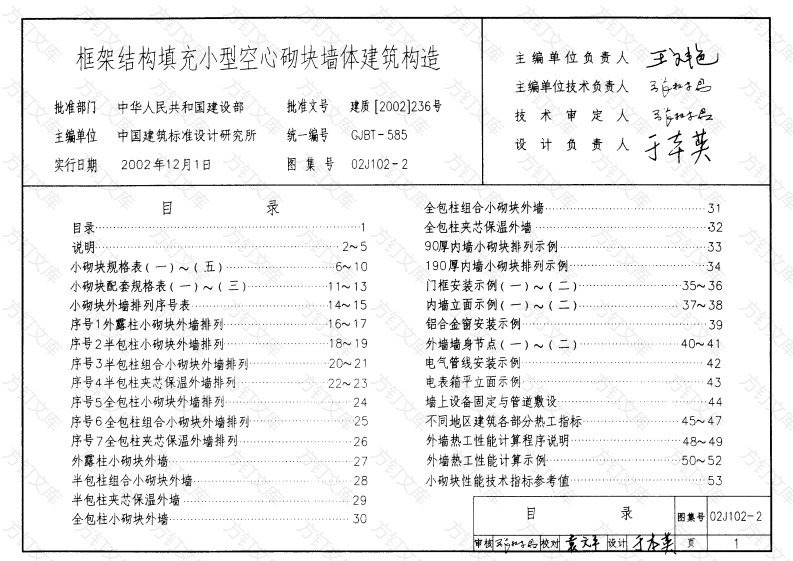 框架结构填充小型空心砌块墙体建筑构造
批准部门 中华人民共和国建设部 批准文号 建质[2002]236号
主编单位 中国建筑标准设计研究所 统一编号 GJBT-585
实行日期 2002年12月1日 图集号 02J102-2
主编单位负责人
主编单位技术负责人
技术审定人
设计负责人 于本英
目 录
目录 1
说明 2~5
小砌块规格表(一)~(五) 6~10
小砌块配套规格表(一)~(三) 11~13
小砌块外墙排列序号表 14~15
序号1外露柱小砌块外墙排列 16~17
序号2半包柱小砌块外墙排列 18~19
序号3半包柱组合小砌块外墙排列 20~21
序号4半包柱夹芯保温外墙排列 22~23
序号5全包柱小砌块外墙排列 24
序号6全包柱组合小砌块外墙排列 25
序号7全包柱夹芯保温外墙排列 26
外露柱小砌块外墙 27
半包柱组合小砌块外墙 28
半包柱夹芯保温外墙 29
全包柱小砌块外墙 30
全包柱组合小砌块外墙 31
全包柱夹芯保温外墙 32
90厚内墙小砌块排列示例 33
190厚内墙小砌块排列示例 34
门框安装示例(一)~(二) 35~36
内墙立面示例(一)~(二) 37~38
铝合金窗安装示例 39
外墙墙身节点(一)~(二) 40~41
电气管线安装示例 42
电表箱平立面示例 43
墙上设备固定与管道敷设 44
不同地区建筑各部分热工指标 45~47
外墙热工性能计算程序说明 48~49
外墙热工性能计算示例 50~52
小砌块性能技术指标参考值 53
目 录 图集号 02J102-2
审核 校对 设计 于本英 页 1
方钉文库